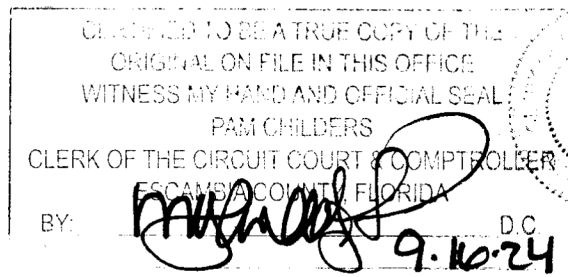 CERTIFIED TO BE A TRUE COPY OF THE
ORIGINAL ON FILE IN THIS OFFICE
WITNESS MY HAND AND OFFICIAL SEAL
PAM CHILDERS
CLERK OF THE CIRCUIT COURT & COMPTROLLER
ESCAMBIA COUNTY, FLORIDA
BY: D.C.
9.16.24